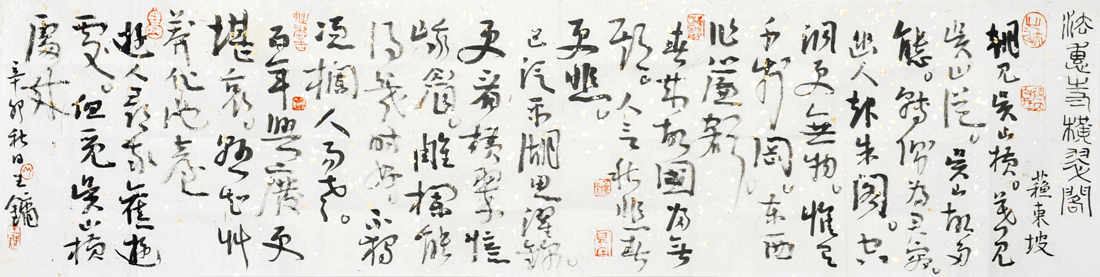 法惠寺橫翠閣
蘇東坡
朝見吳山橫。暮見
吳山從。吳山故多
態。轉側為君容
幽人起朱閣。空
洞更無物。惟有
千步岡。東西
作簾額。
春來故國歸無
期。人言秋悲春
更悲。
已泛平湖思濯錦。
更看橫翠憶
峨眉。雕欄能
得幾時好。不獨
憑欄人易老。
百年興廢更
堪哀。懸知草
莽化池臺
遊人尋我舊遊
處。但覓吳山橫
處來
辛卯秋日王鏞